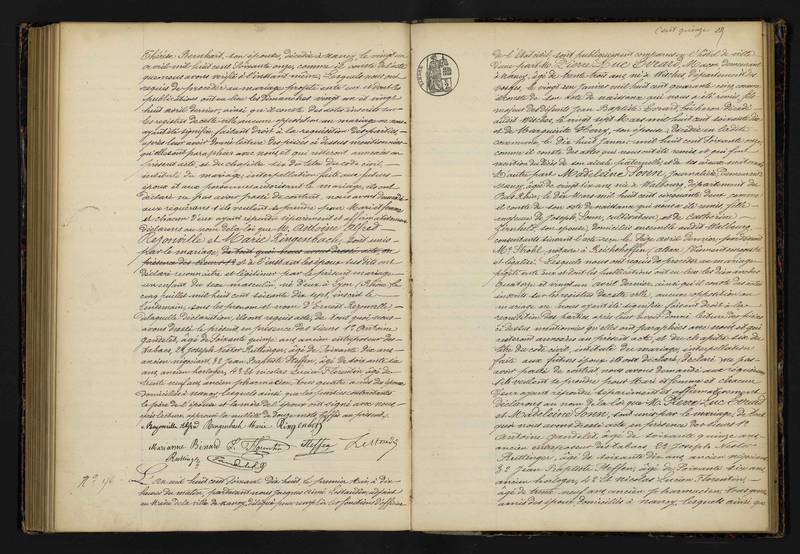 Thérèse Bernhart, son épouse, décédée à Nancy, le vingt un
avril mil huit cent soixante onze, comme il conste de l'acte
que nous avons vérifié à l'instant même. Lesquels nous ont
requis de procéder au mariage projeté entre eux et dont les
publications ont eu lieu les dimanches vingt un et vingt
huit avril dernier, ainsi qu'il conste des actes inscrits sur
les registres de cette ville, aucune opposition au mariage ne nous
ayant été signifiée, faisant droit à la réquisition des parties
après leur avoir donné lecture des pièces ci dessus mentionnées
qu'elles ont paraphées avec nous et qui resteront annexées au
présent acte, et du chapitre six du titre du code civil,
intitulé du mariage, interpellation faite aux futurs
époux et aux personnes autorisant le mariage, ils ont
déclaré n'avoir pas passé de contrat, nous avons demandé
aux requérans s'ils veulent se prendre pour Mari et femme
et chacun d'eux ayant répondu séparément et affirmativement
déclarons au nom de la loi que M. Antoine Alfred
Rezonville et Marie Ringenbach, sont unis
par le mariage,
et à l'instant les époux susdits ont
déclaré reconnaître et légitimer par le présent mariage
un enfant du sexe masculin, né d'eux à Lyon (Rhône) le
cinq juillet mil huit cent soixante dix sept, inscrit le
lendemain, sous les prénoms et nom d'Ernest Rezonville,
de laquelle déclaration, ils ont requis acte, de tout quoi nous
avons dressé le présent, en présence des sieurs 1° Antoine
Gandelet, âgé de soixante quinze ans, ancien entreposeur des
tabacs, 2° Joseph Nestor Rettinger, âgé de soixante dix ans,
ancien négociant, 3° Jean Baptiste Steffen, âgé de soixante six
ans, ancien horloger, 4° Et Nicolas Lucien Florentin, âgé de
trente neuf ans, ancien pharmacien, tous quatre amis des époux
domiciliés à Nancy, lesquels ainsi que les parties contractantes
le père de l'époux et la mère de l'épouse ont signé avec nous
après lecture, approuvé la nullité de douze mots rayés au présent
Rezonville Alfred Ringenbach Marie Ringenbach
Marianne Bénard L. Florentin Steffen Lestaudin
Rettinger
N° 196
L'an mil huit cent soixante dix huit, le premier Mai à dix
heures du matin, pardevant nous Jacques Aimé Lestaudin, adjoint
au Maire de la ville de Nancy, délégué pour remplir les fonctions d'officier
Cent quinze
de l'état civil, sont publiquement comparus en l'hôtel de ville
d'une part M. Pierre Luc Evrard, Maçon demeurant
à Nancy, âgé de trente trois ans, né à Vitchey, département des
Vosges, le vingt six janvier mil huit cent quarante cinq comme
il conste de son acte de naissance qui nous a été remis, fils
majeur des défunts Jean Baptiste Evrard, décédé
audit
et de Marguerite Henry, son épouse, décédée en ladite
commune, le dix huit janvier mil huit cent soixante onze,
comme il conste des actes qui nous ont été remis, et qui font
mention du décès de son aïeule paternelle et de ses aïeux maternels
Et d'autre part Madeleine Sonn, journalière, demeurant à
Nancy, âgée de vingt six ans, née à Walbourg, département du
Bas Rhin, le dix Mai mil huit cent cinquante deux, comme
il conste de son acte de naissance qui nous a été remis, fille
majeure de Joseph Sonn, cultivateur, et de Catherine
son épouse, domiciliés ensemble audit Walbourg,
consentants suivant l'acte reçu le seize avril dernier, pardevant
Me Strohl, notaire à Reichshoffen, (Alsace) dûment enregistré
et légalisé. Lesquels nous ont requis de procéder au mariage
projeté entre eux et dont les publications ont eu lieu les dimanches
quatorze et vingt un avril dernier, ainsi qu'il conste des actes
inscrits sur les registres de cette ville, aucune opposition au
mariage ne nous ayant été signifiée, faisant droit à la
réquisition des parties, après leur avoir donné lecture des pièces
ci dessus mentionnées qu'elles ont paraphées avec nous et qui
resteront annexées au présent acte, et du chapitre six du
titre du code civil, intitulé du mariage, interpellation
faite aux futurs époux, ils ont déclaré n'avoir pas
passé de contrat, nous avons demandé aux requérans
s'ils veulent se prendre pour Mari et femme et chacun
d'eux ayant répondu séparément et affirmativement
déclarons au nom de la loi que M. Pierre Luc Evrard
et Madeleine Sonn, sont unis par le mariage, de tout
quoi nous avons dressé acte en présence des sieurs 1°
Antoine Gandelet, âgé de soixante quinze ans,
ancien entreposeur des tabacs, 2° Joseph Nestor
Rettinger, âgé de soixante dix ans, ancien négociant
3° Jean Baptiste Steffen, âgé de soixante six ans
ancien horloger, 4° Et Nicolas Lucien Florentin,
âgé de trente neuf ans, ancien pharmacien, tous quatre
amis des époux, domiciliés à Nancy, lesquels ainsi que